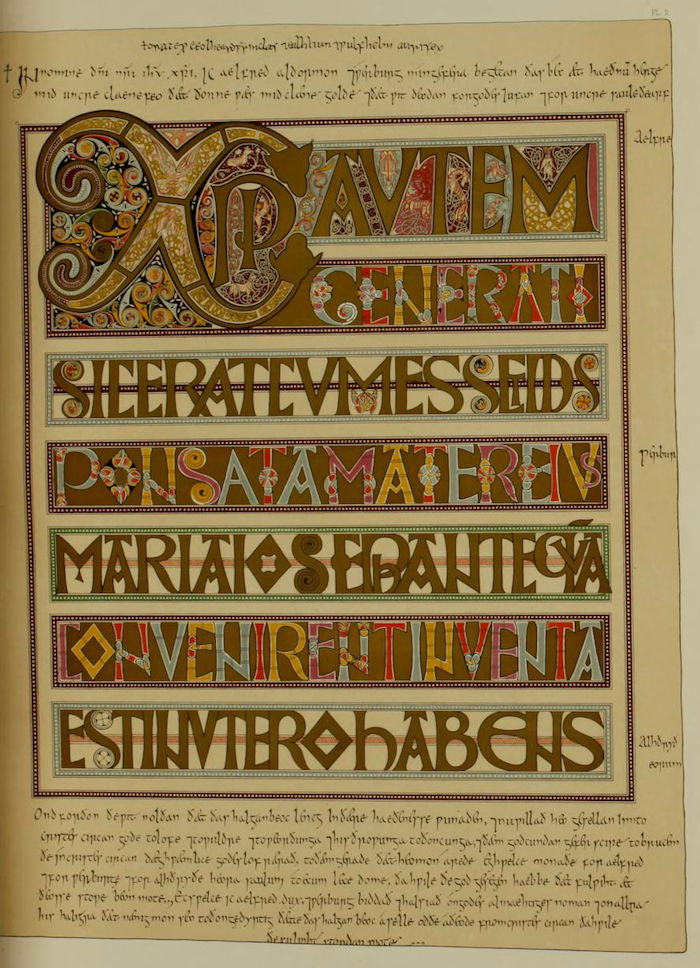 orate p ceolheard pr inclas ⁊ ealhhun ⁊ wulfhelm aurifex
+ In nomine dñi nri ihu xpi, Ic aelfred aldormon ⁊ werburg min gefera begetan ðas bec æt haeðnū herge
mid uncre claene feo ðæt ðonne wæs mid clæne golde ⁊ ðæt wit deodan for godes lufan ⁊ for uncre saule ðearfe
Aelfre
XPI AUTEM
GENERATI
SIC ERAT CUM ESSET DIS
PONSATA MATER EIUS
werbur
MARIA IOSEPH ANTEQUĀ
CONVENIRENT INVENTA
EST IN UTERO HABENS
Alhðryð
eorum
Ond forðon ðe wit noldan ðæt ðas halgan beoc lencg in ðære haeðenesse wunaden, ⁊ nu willað heo gesellan inn to
cristes circan gode to lofe ⁊ to wuldre ⁊ to weorðunga ⁊ his ðrowunga to ðoncunga, ⁊ ðæm godcundan geferscipe to brucen
ðe in cristes circan dæghwæmlice godes lof rærað, to ðæm gerade ðæt heo mon arede eghwelce monaðe for aelfred
⁊ for werburge ⁊ for alhðryðe heora saulum to ecum lecedome, ða hwile ðe god gesegen haebbe ðæt fulwiht æt
ðeosse stowe beon mote, Ec swelce ic aelfred dux ⁊ werburg biddað ⁊ halsiað on godes almaehtiges noman ⁊ on allra
his haligra ðæt nænig mon seo to ðon gedyrstig ðætte ðas halgan beoc aselle oððe aðeode from cristes circan ða hwile
ðe fulwiht stondan mote